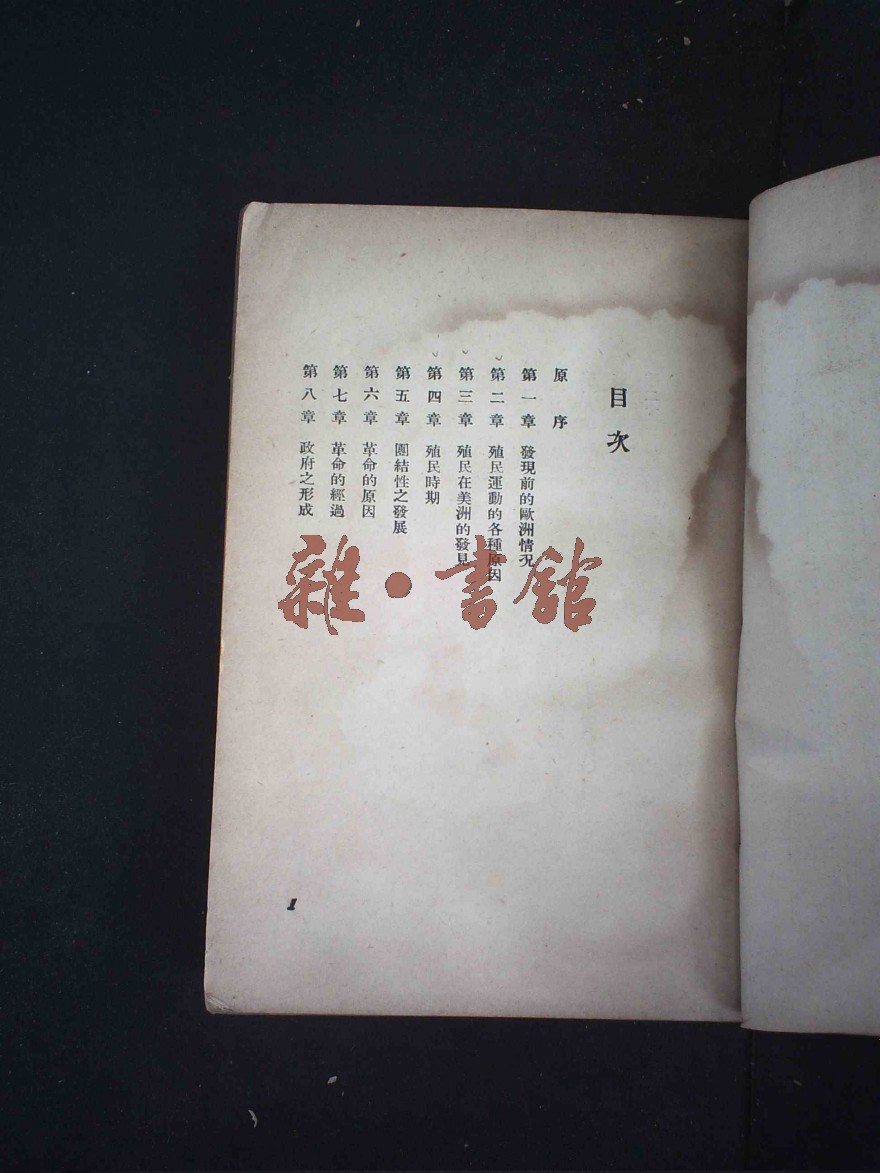 目次
原序
第一章 發現前的歐洲情況
第二章 殖民運動的各種原因
第三章 殖民在美洲的發見
第四章 殖民時期
第五章 團結性之發展
第六章 革命的原因
第七章 革命的經過
第八章 政府之形成
雜·書館
1